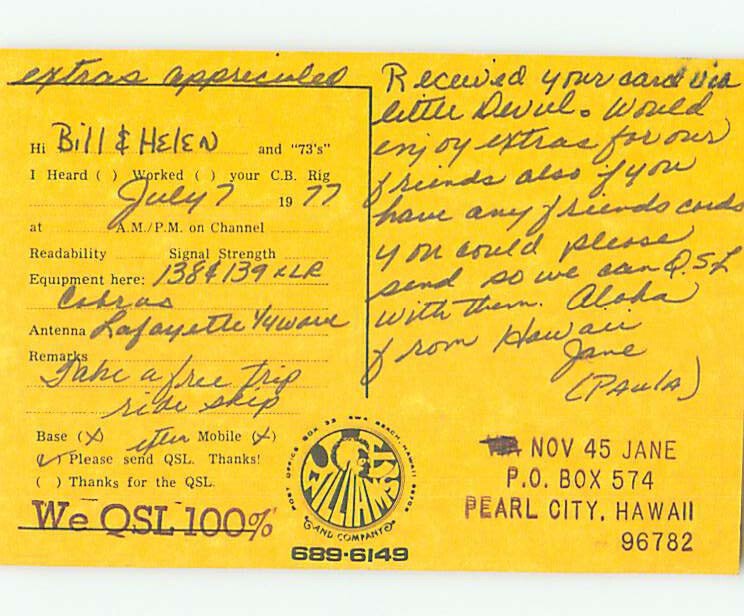 extras appreciated
Hi Bill & HELEN and "73's"
I Heard ( ) Worked ( ) your C.B. Rig
July 7 1977
at A.M./P.M. on Channel
Readability Signal Strength
Equipment here: 138 & 139 XLR
Cobras
Antenna Lafayette 1/4 wave
Remarks
Take a free trip
ride skip
Base (X) Mobile (X)
(✓) Please send QSL. Thanks!
( ) Thanks for the QSL.
We QSL 100%
Received your card via
little Devil. Would
enjoy extras for our
friends also if you
have any friends cards
you could please
send so we can Q.S.L
with them. Aloha
from Hawaii
Jane
(PAULA)
POST OFFICE BOX 35 EWA BEACH, HAWAII 96706
WILLIAMS
AND COMPANY
689-6149
NOV 45 JANE
P.O. BOX 574
PEARL CITY, HAWAII
96782